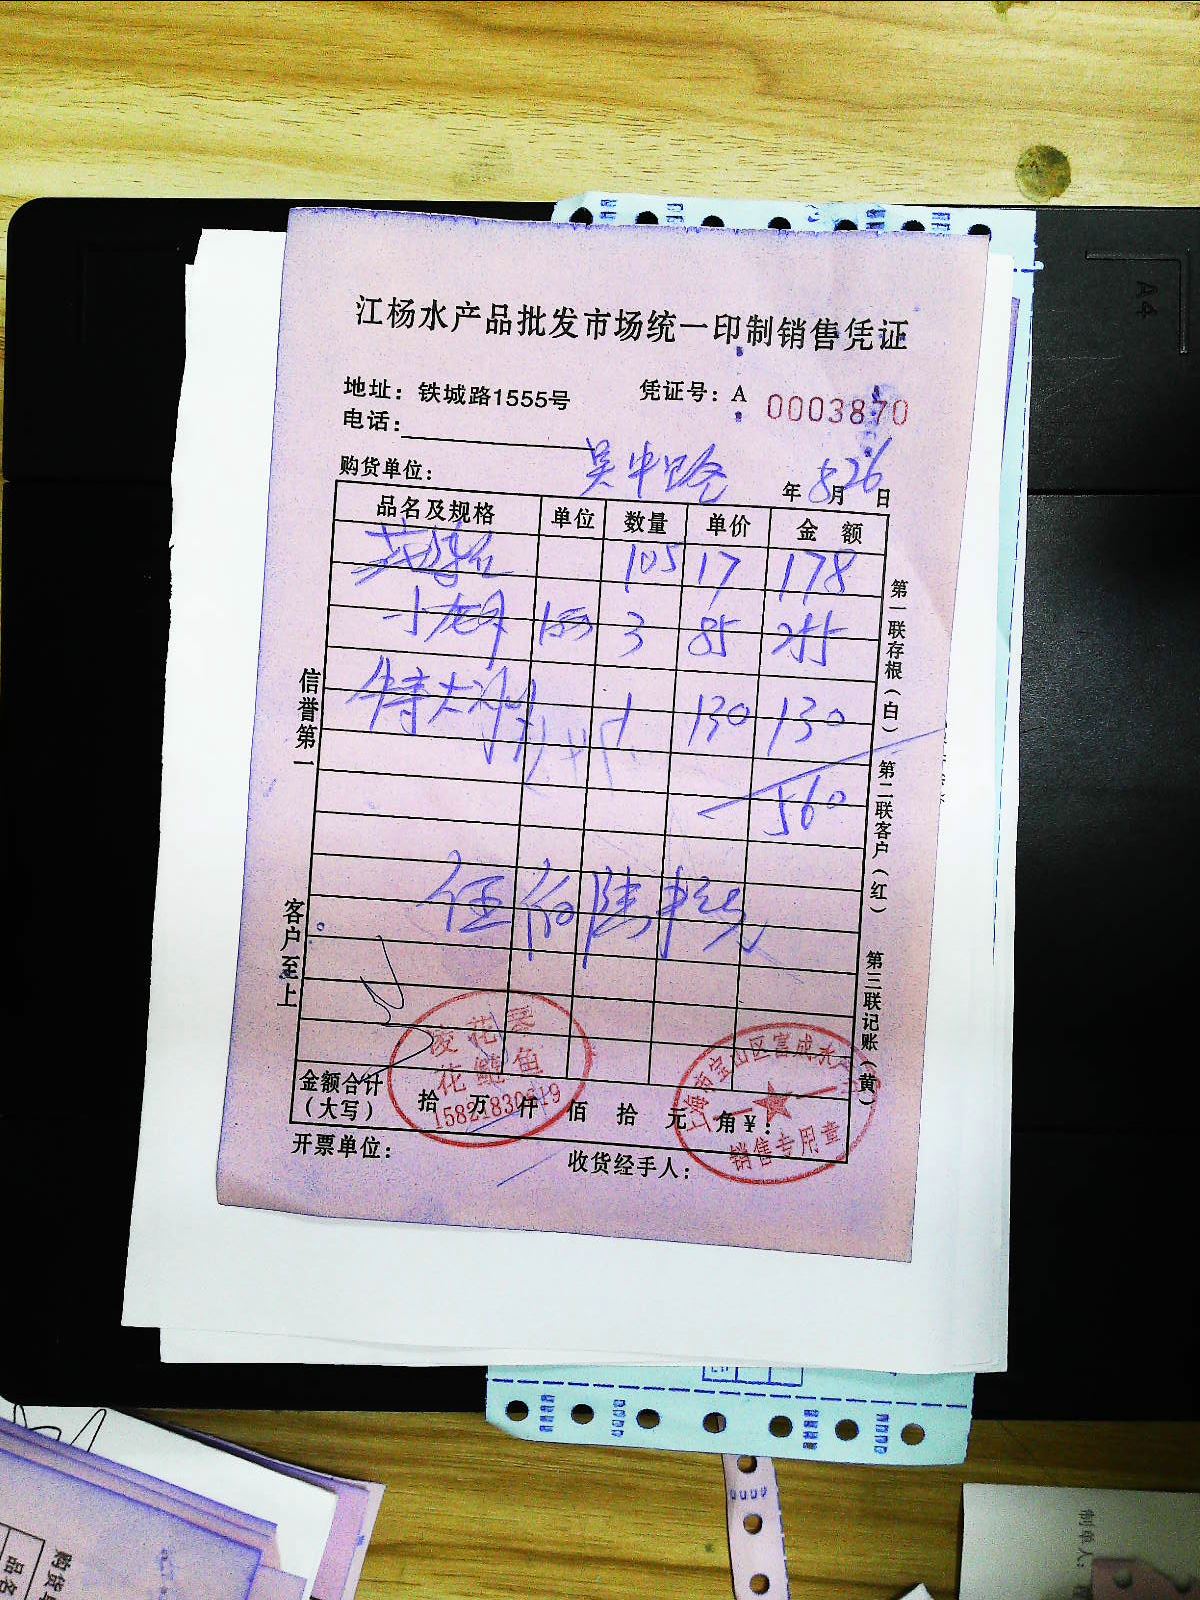 江杨水产品批发市场统一印制销售凭证
地址：铁城路1555号 凭证号：A 0003870
电话：
购货单位： 吴中路 年 5月 26日
品名及规格 单位 数量 单价 金额
105 17 178
小龙 3 85 255
特大 1 130 130
560
伍佰陆拾元
金额合计（大写） 拾 万 仟 佰 拾 元 角 ¥：
开票单位： 收货经手人：
信誉第一 客户至上
第一联存根（白） 第二联客户（红） 第三联记账（黄）
凌花琴
花鲢鱼
销售专用章
A4
制单人：
购货
品名